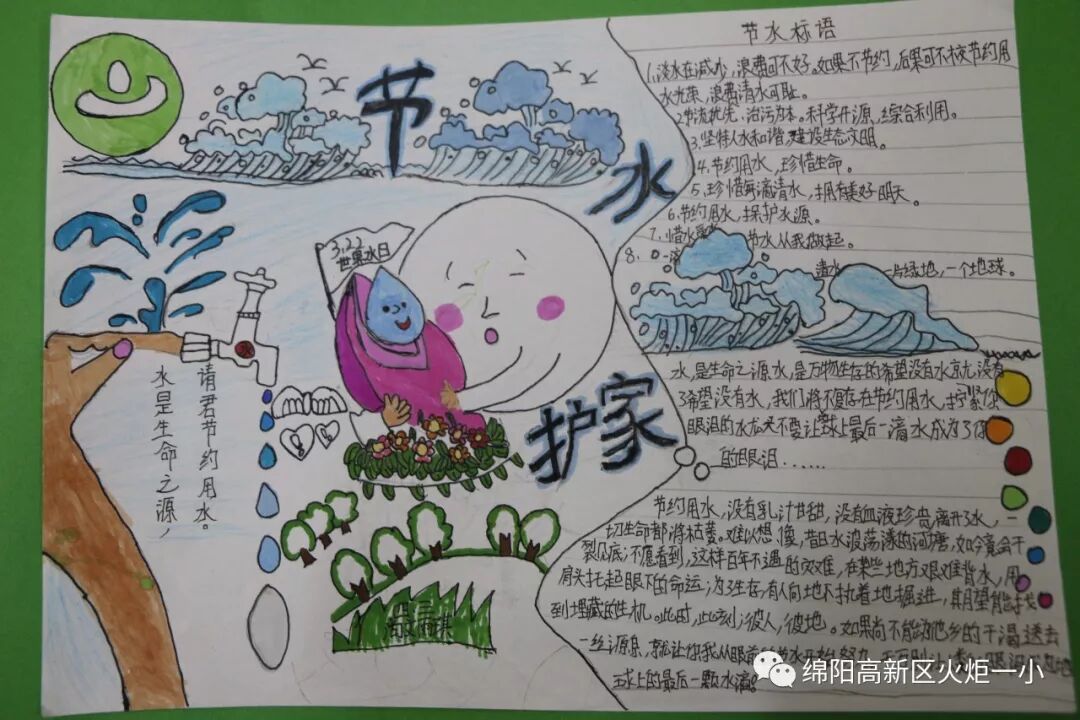 节水
护家
3.22
世界水日
请君节约用水。
水是生命之源，
节水标语
1、淡水在减少，浪费可不好。如果不节约，后果可不校节约用
水光荣，浪费清水可耻。
2、节流优先，治污为本。科学开源，综合利用。
3、坚持人水和谐，建设生态文明。
4、节约用水，珍惜生命。
5、珍惜每滴清水，拥有美好明天。
6、节约用水，保护水源。
7、惜水 节水从我做起。
8、 一滴 清水 一片绿地，一个地球。
水，是生命之源水，是万物生存的希望没有水就没有
了希望没有水，我们将不复存在节约用水，拧紧你
眼泪的水龙头不要让球上最后一滴水成为了你
的眼泪……
节约用水，没有乳汁甘甜，没有血液珍贵，离开了水，一
切生命都将枯萎。难以想像，昔日水波荡漾的河塘，如今竟会干
裂见底；不愿看到，这样百年不遇的灾难，在某些地方艰难背水，用
肩头托起眼下的命运；为生存，有人向地下执着地掘进，期望能寻找
到埋藏的生机。此时，此刻；彼人，彼地。如果尚不能动他乡的干渴送去
一丝源泉，就让你我从眼前的节水开始努力，
球上的最后一颗水滴。
绵阳高新区火炬一小